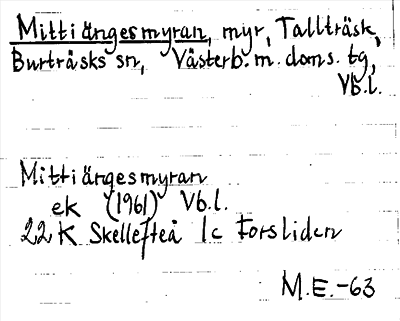 Mittiängesmyran, myr, Tallträsk,
Burträsks sn, Västerb. m. doms. tg,
Vb.l.
Mittiängesmyran
ek (1961) Vb.l.
22 K Skellefteå 1c Forsliden
M.E.-63